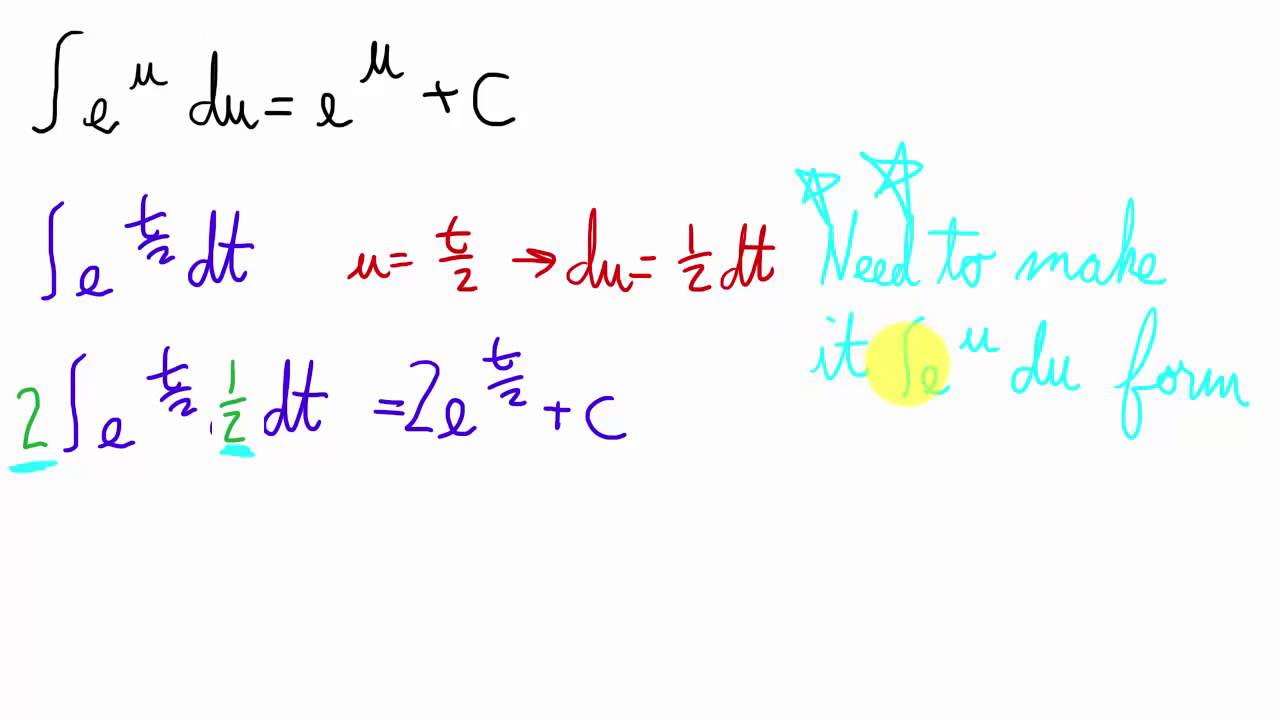 ∫e^u du = e^u + C
∫e^(t/2) dt u = t/2 → du = 1/2 dt
Need to make
it ∫e^u du form
2∫e^(t/2) · 1/2 dt = 2e^(t/2) + C